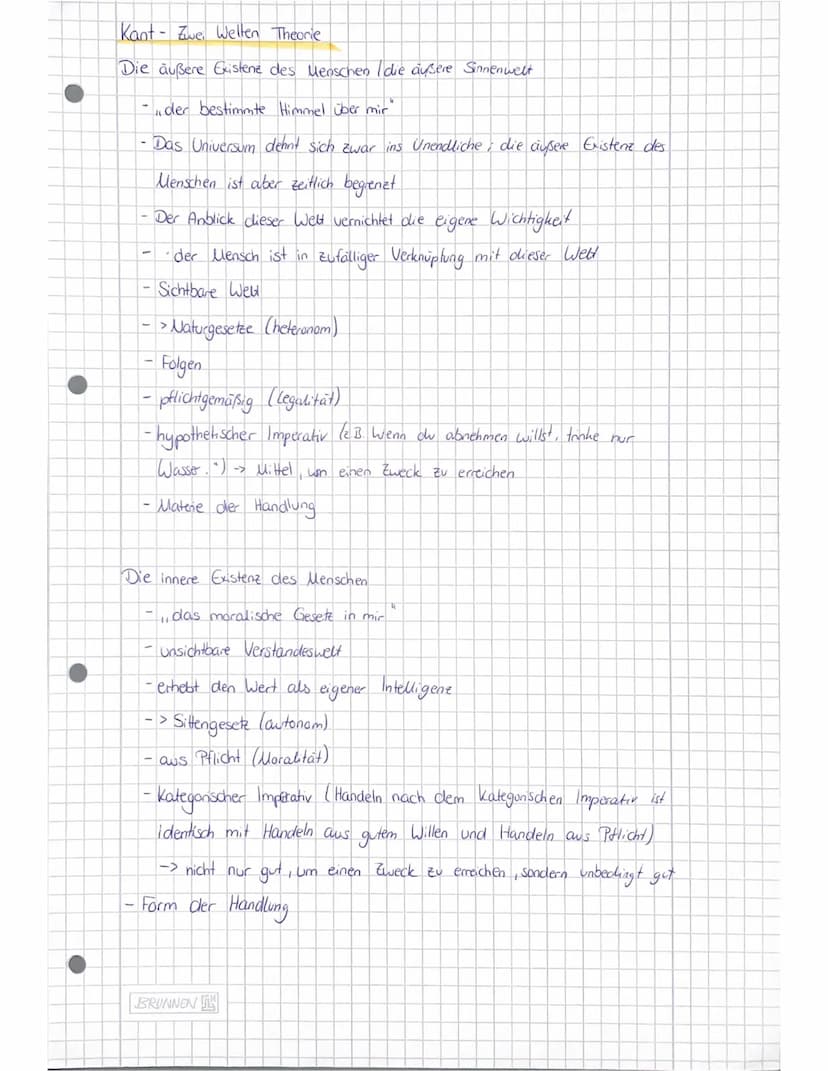 Kant - Zwei Welten Theorie
Die äußere Existenz des Menschen / die äußere Sinnenwelt
- „der bestimmte Himmel über mir"
- Das Universum dehnt sich zwar ins Unendliche; die äußere Existenz des
Menschen ist aber zeitlich begrenzt
- Der Anblick dieser Welt vernichtet die eigene Wichtigkeit
- · der Mensch ist in zufälliger Verknüpfung mit dieser Welt
- Sichtbare Welt
- > Naturgesetze (heteronom)
- Folgen
- pflichtgemäßig (Legalität)
- hypothetischer Imperativ (z.B. Wenn du abnehmen willst, trinke nur
Wasser.") -> Mittel, um einen Zweck zu erreichen
- Materie der Handlung
Die innere Existenz des Menschen
- „das moralische Gesetz in mir"
- unsichtbare Verstandeswelt
- erhebt den Wert als eigener Intelligenz
- > Sittengesetz (autonom)
- aus Pflicht (Moralität)
- Kategorischer Imperativ (Handeln nach dem Kategorischen Imperativ ist
identisch mit Handeln aus gutem Willen und Handeln aus Pflicht)
-> nicht nur gut, um einen Zweck zu erreichen, sondern unbedingt gut
- Form der Handlung
BRUNNEN